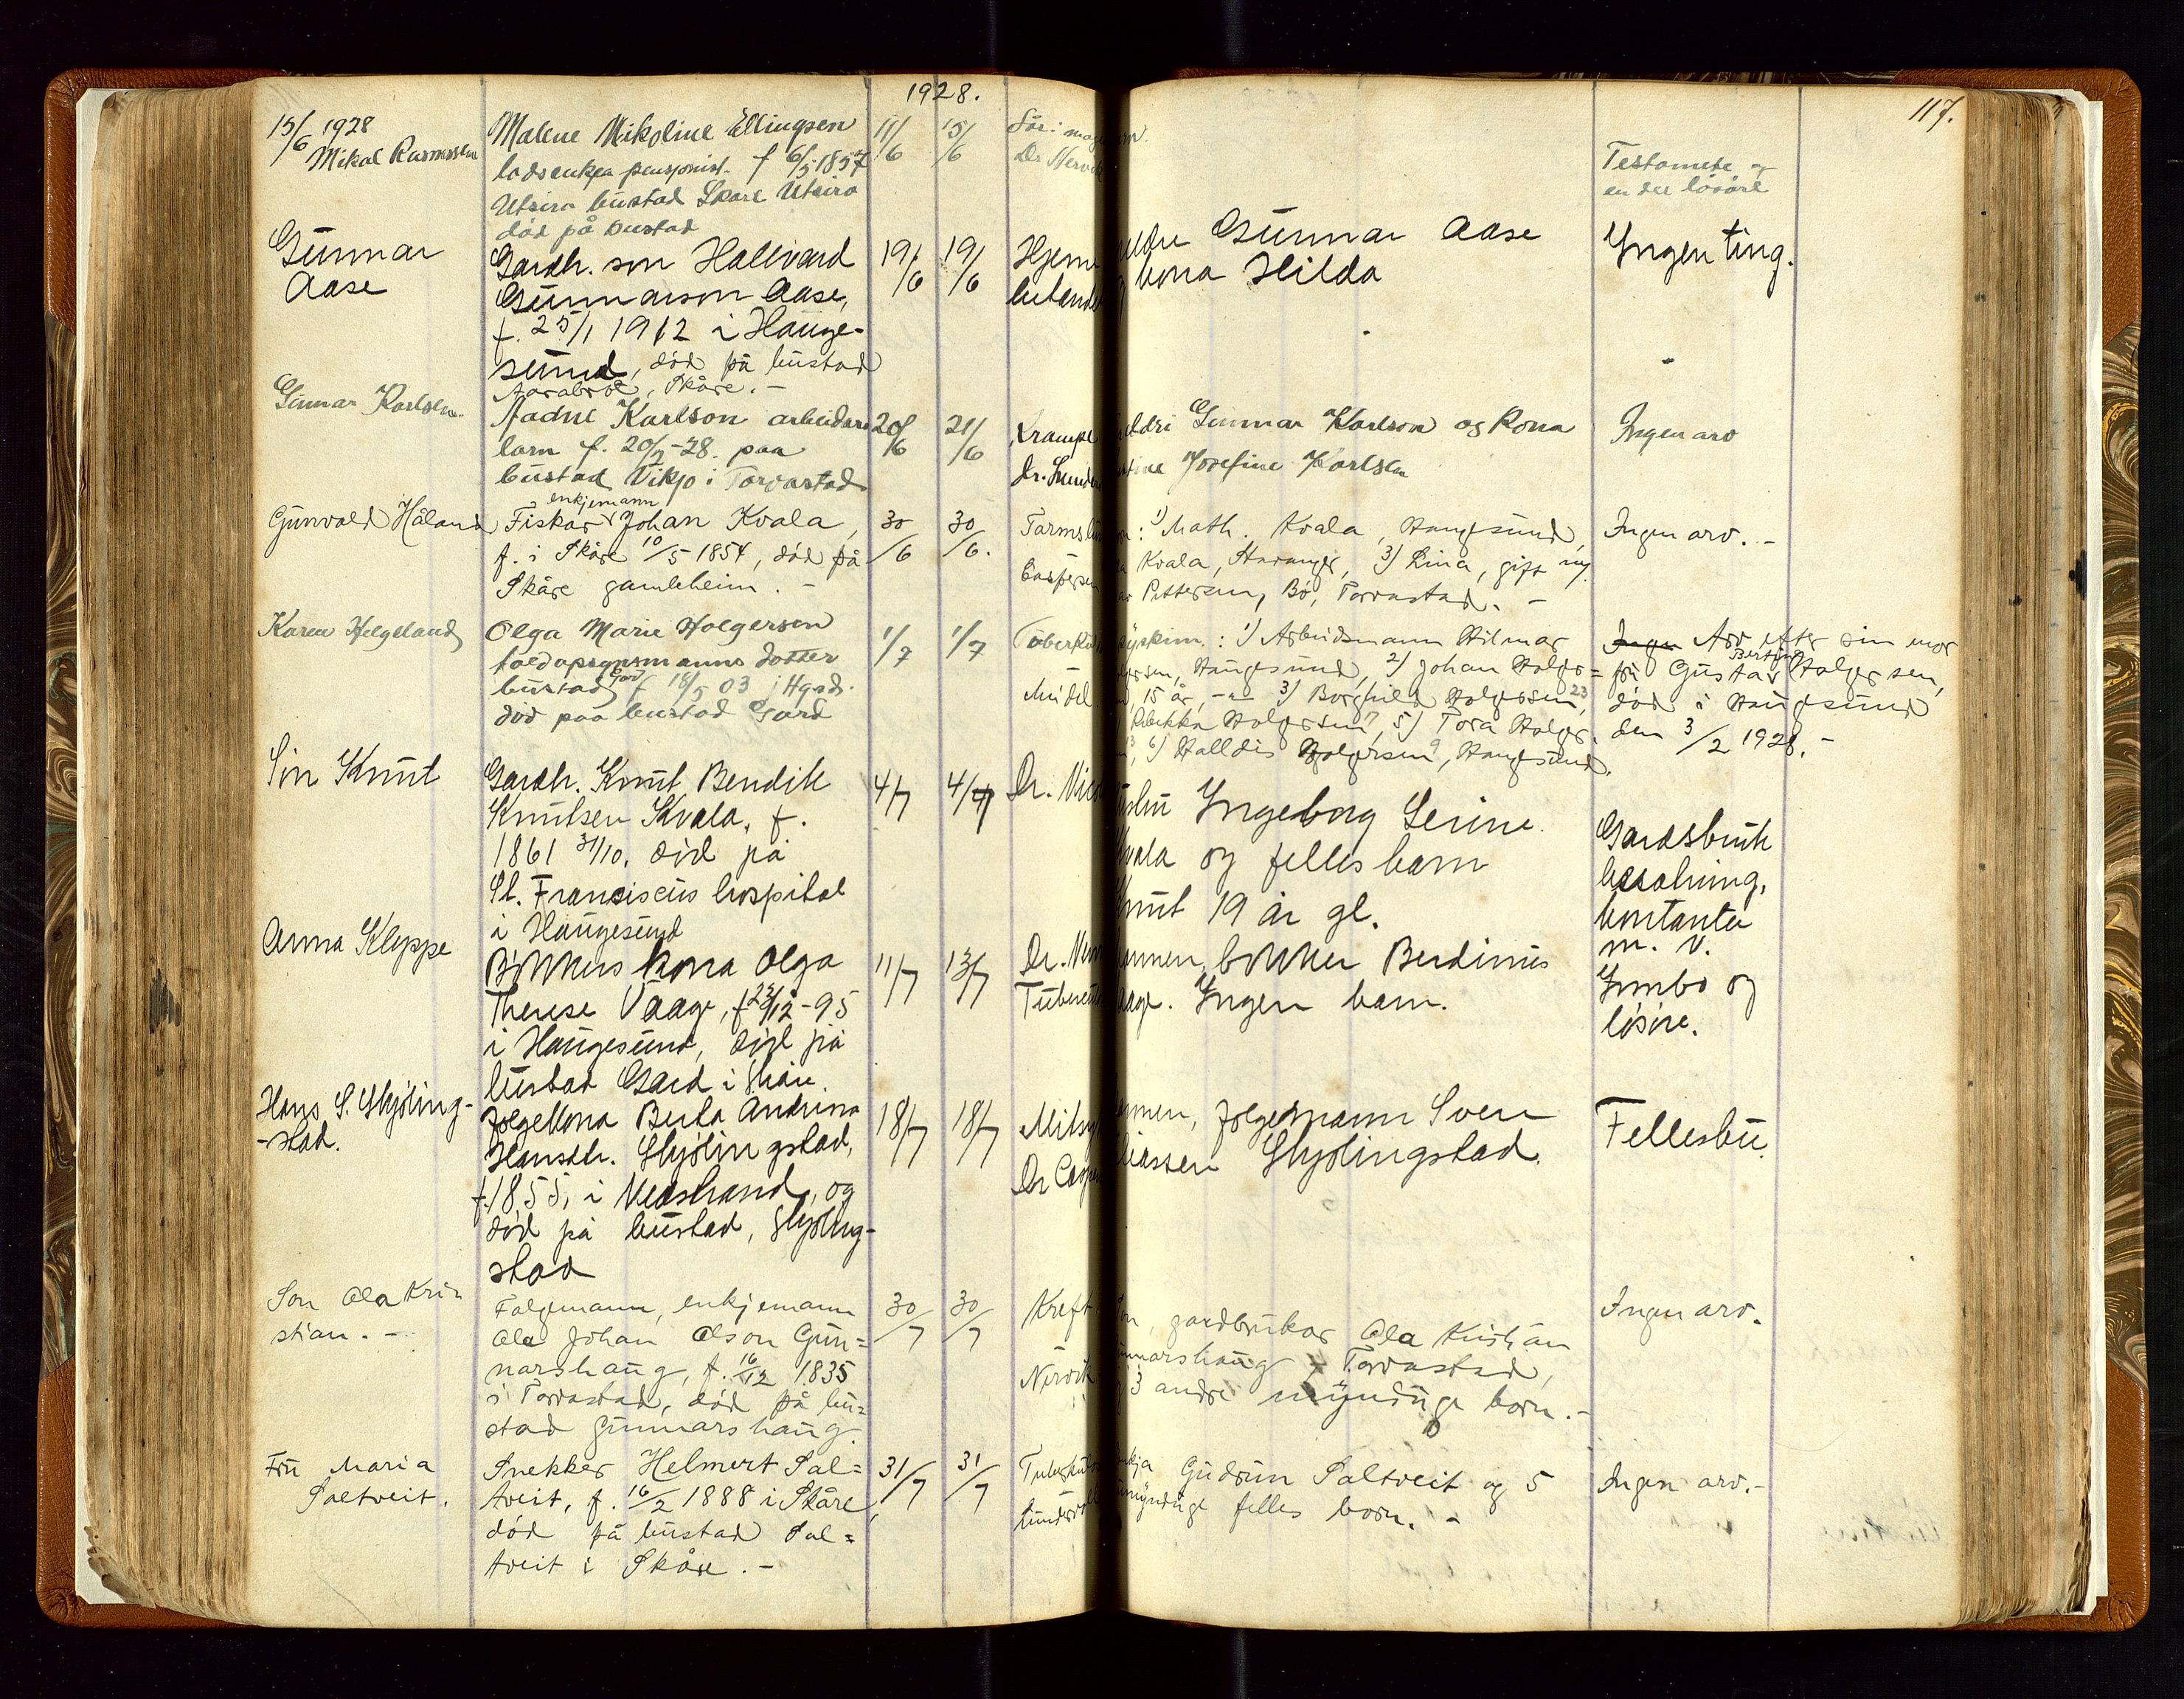 1928.
117.
15/6 1928
Mikal Rasmussen
Malene Mikoline Ellingsen
losenkja pensjonist. f 6/5 1857
Utsira bustad Skare Utsira
död på bustad
11/6
15/6
Sår i mage
Dr Nervik
Testamente og
en del lösöre
Gunnar
Aase
Gardbr. son Hallvard
Gunnarson Aase,
f. 25/1 1912 i Hauge-
sund, död på bustad
Skåre. -
19/6
19/6
Hjerne
Gunnar Aase
kona Hilda
Yngen ting.
Gunnar Karlsen
Karlson arbeidar
barn f. 20/ -28. paa
bustad Vikjo i Torvastad
20/6
21/6
Krampe
Gunnar Karlson og Kona
Josefine Karlsen
Ingen arv
Gunvald Håland
enkjemann
Fiskar Johan Kvala,
f. i Skåre 10/5 1854, död på
Skåre gamleheim. -
30/6
30/6.
Caspersen
: 1) Math. Kvala, Haugesund,
Kvala, Stavanger, 3) Lina, gift m/
Pettersen, Bö, Torvastad. -
Ingen arv. -
Karen Helgeland
Olga Marie Holgersen
dotter
bustad Gard f 18/5 03 i Hgsd.
död paa bustad Gard
1/7
1/7
Tuberkulose
: 1) Arbeidsmann Hilmar
Haugesund, 2) Johan Holger=
15 år, -"- 3) Borghild Holgersen 23,
Rebekka Holgersen 17, 5) Tora Holger-
6) Halldis Holgersen 9, Haugesund.
Ingen Arv efter sin mor
fru Gustava Bertine Holgersen,
död i Haugesund
den 3/2 1928. -
Son Knut
Gardbr. Knut Bendik
Knutsen Kvala, f.
1861 31/10, död på
St. Franciscus hospital
i Haugesund
4/7
4/7
Dr.
Ingeborg Serine
Kvala og felles barn
Knut 19 år gl.
Gardsbruk
besetning,
kontanter
m. v.
Anna Kleppe
Bökkers kona Olga
Therese Vaage, f 23/12-95
i Haugesund, död på
bustad Gard i Skåre.
11/7
13/7
Dr.
mannen, bökker Berdinius
Vaage. Yngen barn.
Innbo og
lösöre.
Hans S. Skjöling-
-stad.
Folgekona Berta Andrina
Hansdtr. Skjölingstad,
f. 1855, i Vedstrand, og
död på bustad, Skjöling-
stad
18/7
18/7
mannen, folgemann Sven
Eliassen Skjölingstad.
Fellesbu.
Son Ola Kri
stian. -
Folgemann, enkjemann
Ola Johan Olson Gun=
narshaug, f. 16/12 1835
i Torvastad, död på bu=
stad Gunnarshaug.
30/7
30/7
Kreft
Nervik
Son, gardbrukar Ola Kristian
Gunnarshaug i Torvastad,
og 3 andre myndige born. -
Ingen arv.
Fru Maria
Saltveit.
Snekker Helmert Sal=
tveit, f. 16/2 1888 i Skåre,
död på bustad Sal=
tveit i Skåre. -
31/7
31/7
Enkja Gudrun Saltveit og 5
umyndige felles born. -
Ingen arv. -